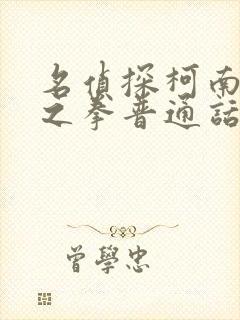 名偵探柯南
之拳普通話
曾學忠